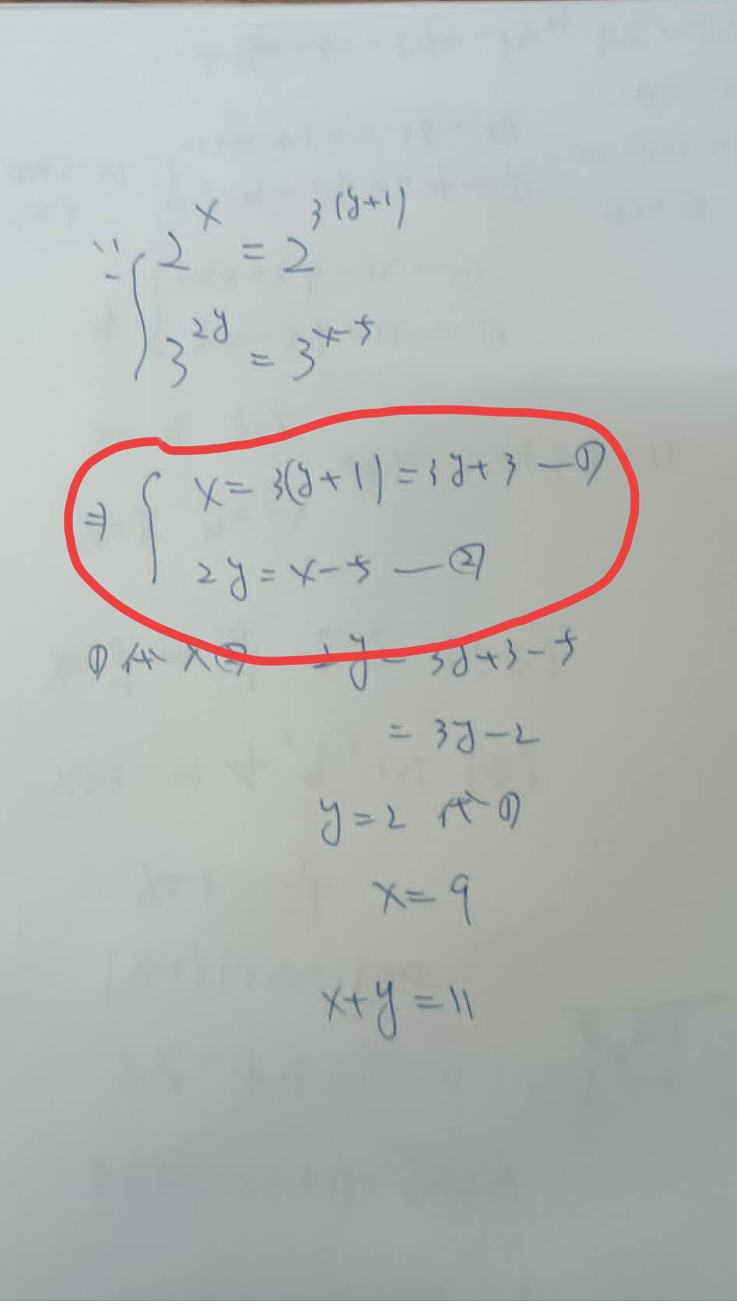 ∵ { 2^x = 2^{3(y+1)}
3^{2y} = 3^{x-5}
⇒ { x = 3(y+1) = 3y+3 — ①
2y = x-5 — ②
①代入② 2y = 3y+3-5
= 3y-2
y=2 代①
x=9
x+y=11